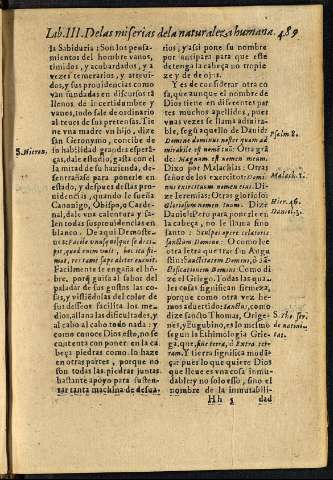 Lib. III. De las miserias de la naturaleza humana. 489
la Sabiduria: Son los pensa-
mientos del hombre vanos,
timidos, y acobardados, y a
vezes temerarios, y atreui-
dos, y sus prouidencias como
van fundadas en discursos
llenos de incertidumbre y
vanos, todo sale de ordinario
al reues de sus pretensas. Tie
ne vna madre vn hijo, dize
S. Hieron.
san Geronymo, concibe de
su habilidad grandes esperã-
ças, dale estudio, gasta con el
la mitad de su hazienda, de-
sentrañase para ponerle en
estado, y despues destas pro-
uidencias, quando le sueña
Canonigo, Obispo, o Carde-
nal, dale vna calentura y sa-
len todas sus prouidencias en
blanco. De aqui Demoste-
nes:
Facilmente se engaña el hõ-
bre, porq̃ guisa al sabor del
paladar de sus gustos las co-
sas, y vistiẽdolas del color de
sus desseos facilita los me-
dios, allana las dificultades, y
al cabo al cabo todo nada: y
como conoce Dios esto, no se
contenta con poner en la ca
beça piedras como lo haze
en otras partes, porque no
son todas las piedras juntas
bastante apoyo para susten-
tar tanta machina de desua-
rios; y assi pone su nombre
por antipara para que este
detenga la cabeça no tropie
ze y de de ojos.
Y es de considerar otra co
sa, que aunque el nombre de
Dios tiene en diferentes par
tes muchos apellidos, pues
vnas vezes se llama admira-
ble, segũ aquello de Dauid:
Psalm. 8.
Domine dominus noster quam ad
mirabile est nomẽ tuũ: Otra grã
de: Magnum est nomen meum.
Dixo por Malachias: Otras
Malach. 1.
señor de los exercitos: Domi-
nus exercituum nomen eius. Di-
ze Ieremias: Otras glorioso:
Hier. 46.
Gloriosum nomen tuum. Dize
Daniel.3.
Daniel: Pero para ponerle en
la cabeça, no le llama sino
santo: Scuspe aspice celaberis
sanctitatem Domino: O como lee
otra letra que trae san Augu
stin: Sanctitatem Domino, ò Sã-
ctificationem Domini: Como di
ze el Griego. Todas las qua-
les cosas significan firmeza,
porque como otra vez he-
mos aduertido: sanctus, como
dize santo Thomas, Orige-
S. Tho.
nes, y Eugubino, es lo mismo
segun la Ethimologia Grie-
ga, que, sine terra, ò Extra ter-
ram. Y tierra significa mudã-
ça: pues lo que quiere Dios
que lleue es vna cosa inmu-
dable y no solo esso, sino el
nombre de la inmutabili-
Hh 3 dad